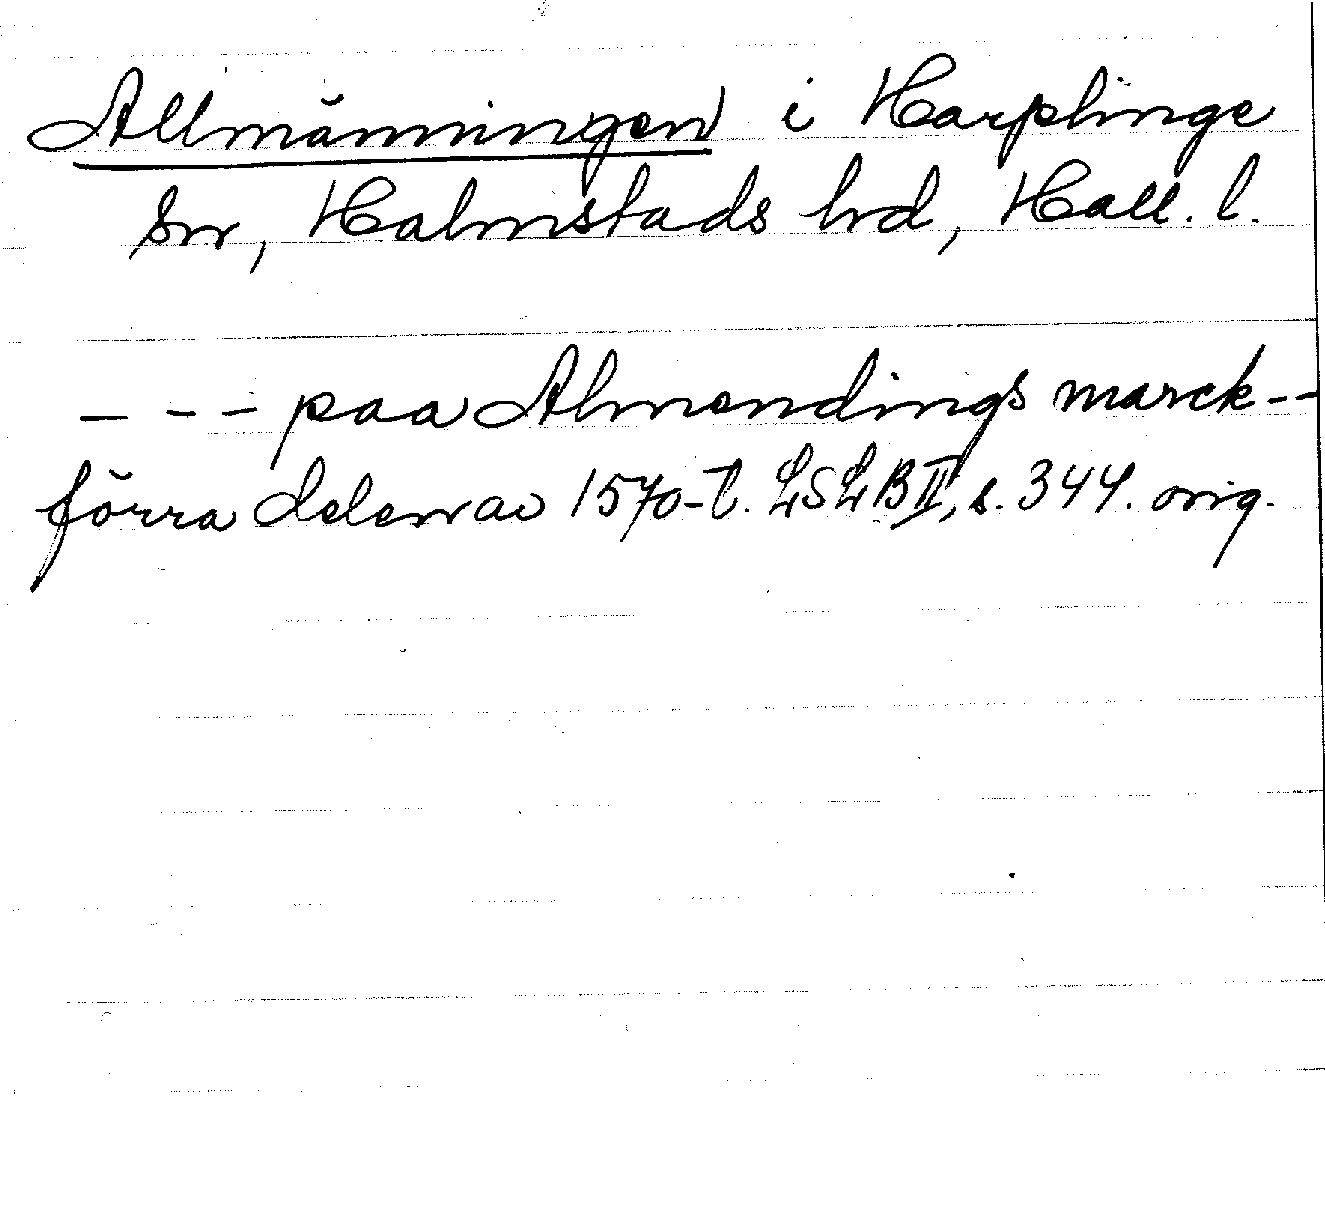 Allmänningen i Harplinge
sn, Halmstads hrd, Hall. l.
– – – paa Almendings marck --
förra delen av 1570-t. LSLB II, s. 344. orig.